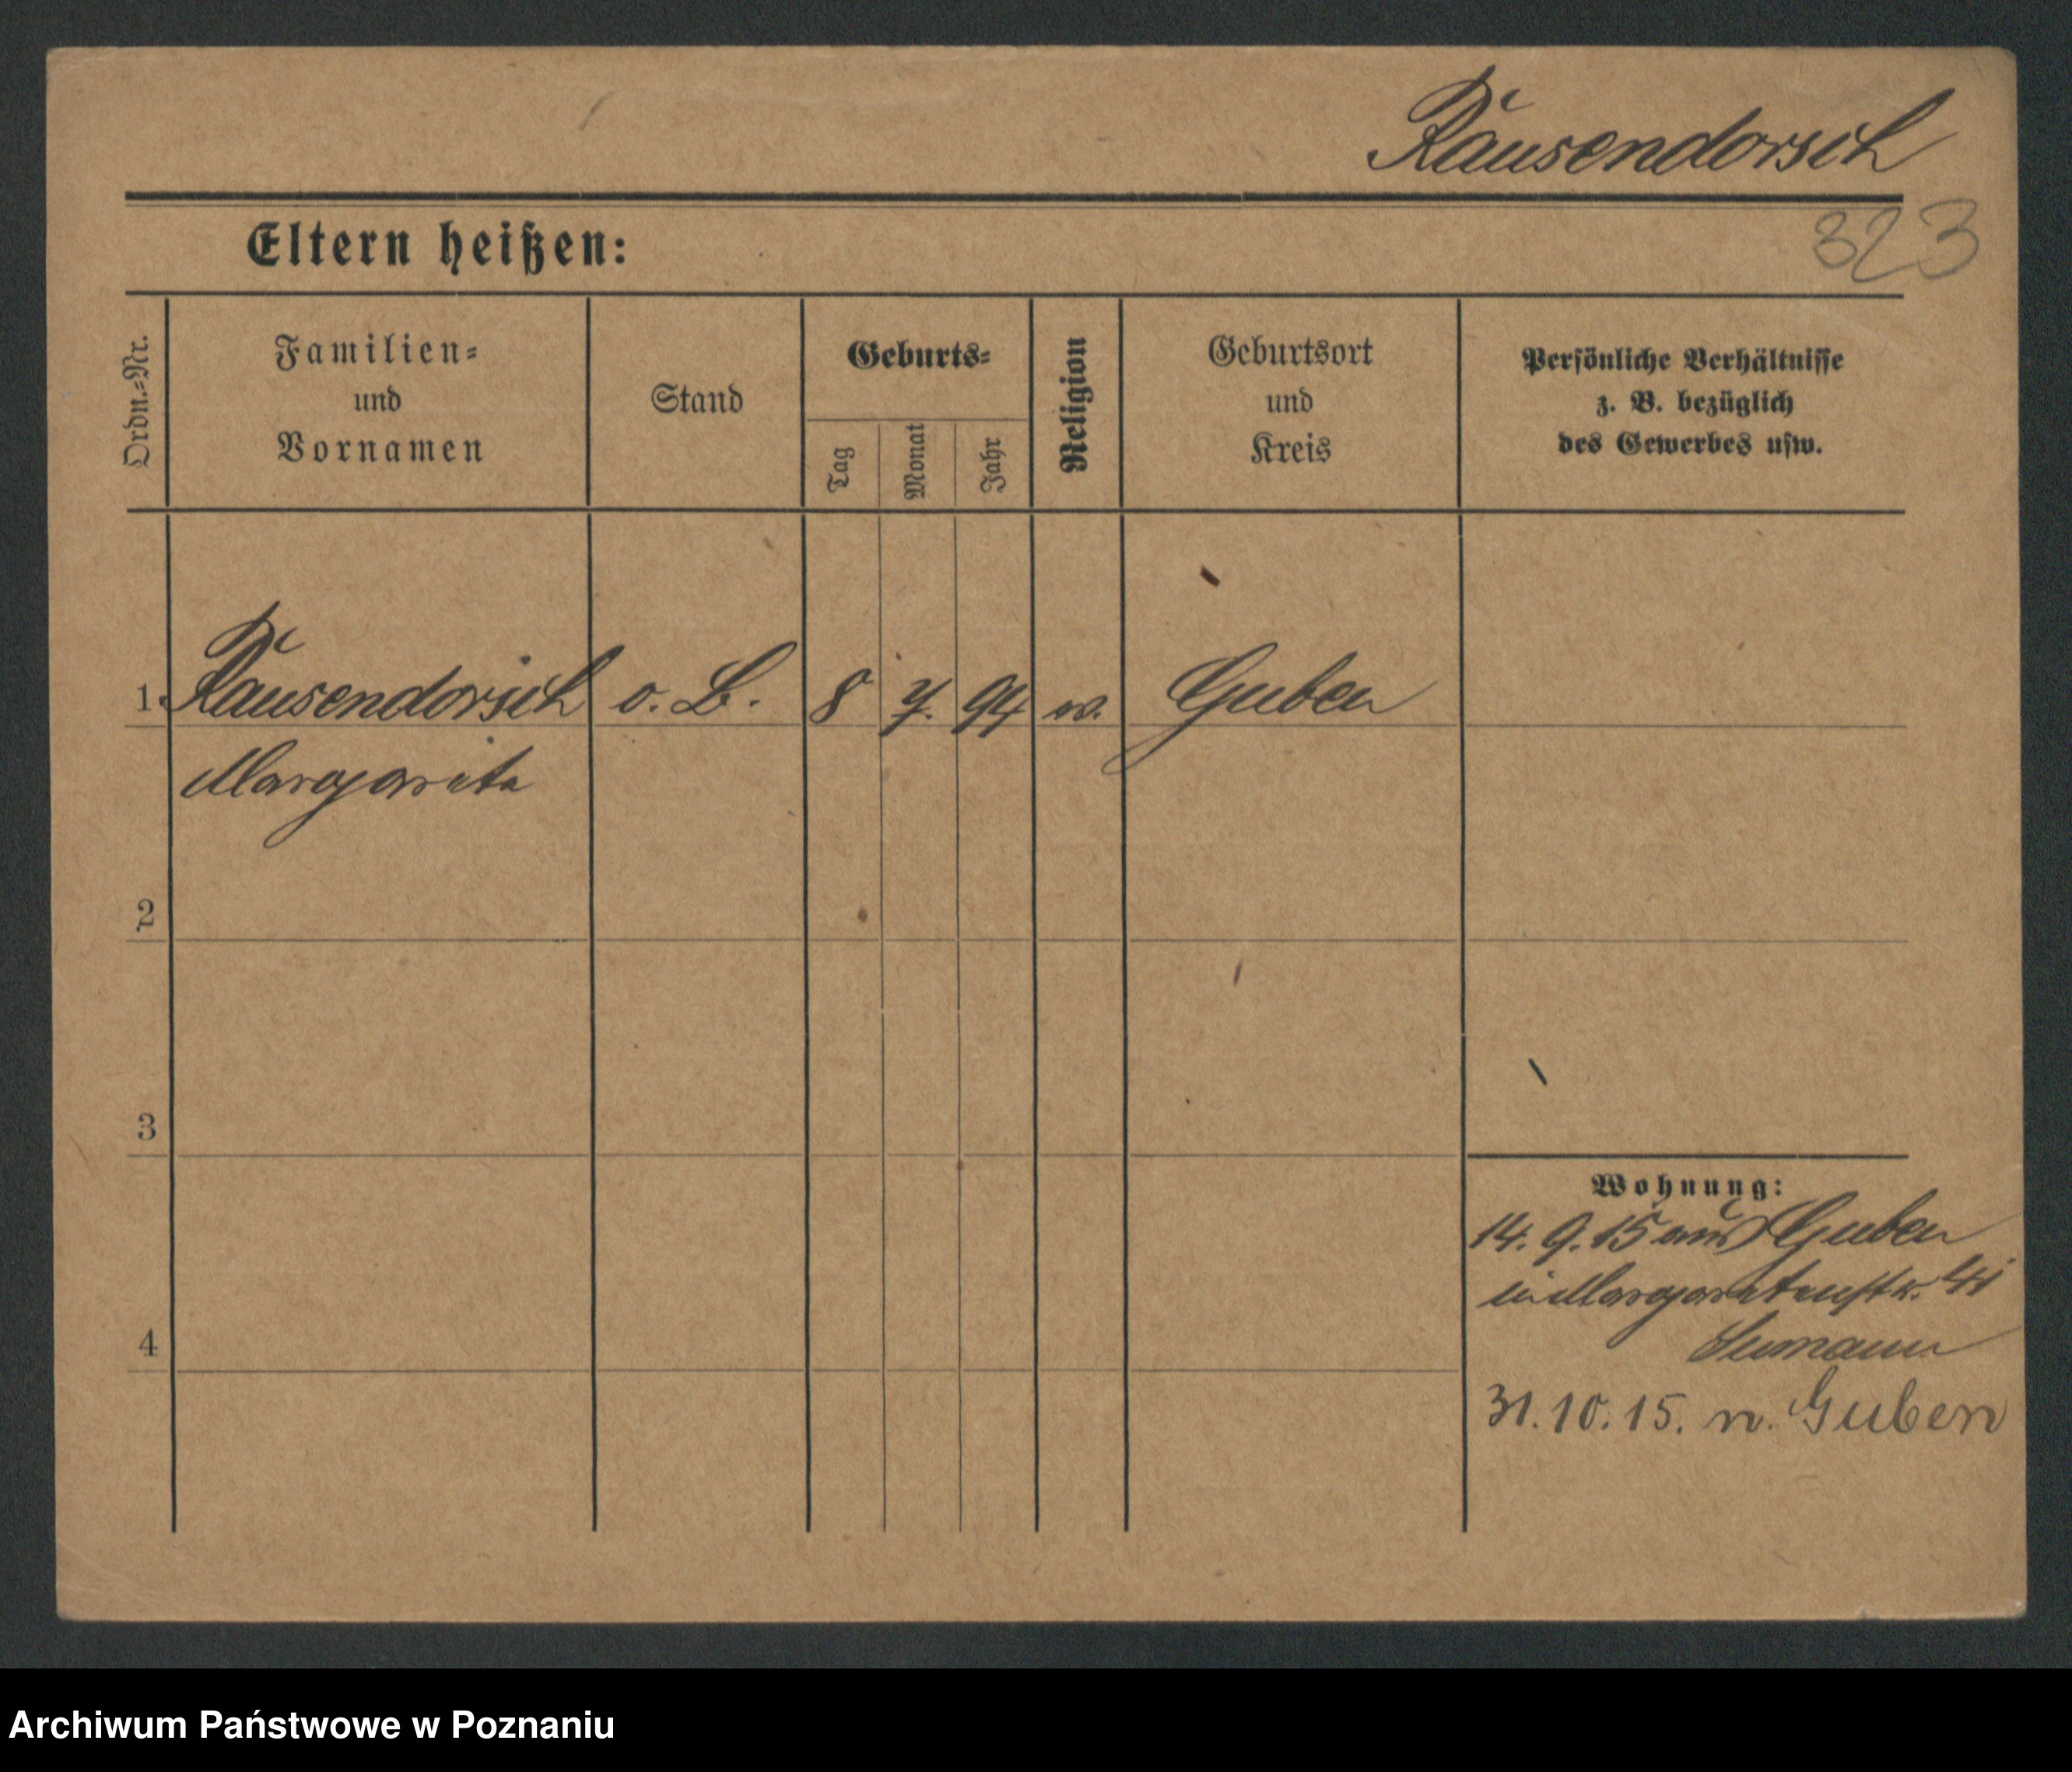 Rausendorsch
323
Eltern heißen:
Ordn.=Nr.
Familien=
und
Vornamen
Stand
Geburts=
Tag
Monat
Jahr
Religion
Geburtsort
und
Kreis
Persönliche Verhältnisse
z. B. bezüglich
des Gewerbes usw.
1. Rausendorsch o. B. 8 7. 94 w. Guben
Margareta
2
3
4
Wohnung:
14. 9. 15 aus Guben
Margaretenstr.
31. 10. 15. n. Guben
Archiwum Państwowe w Poznaniu